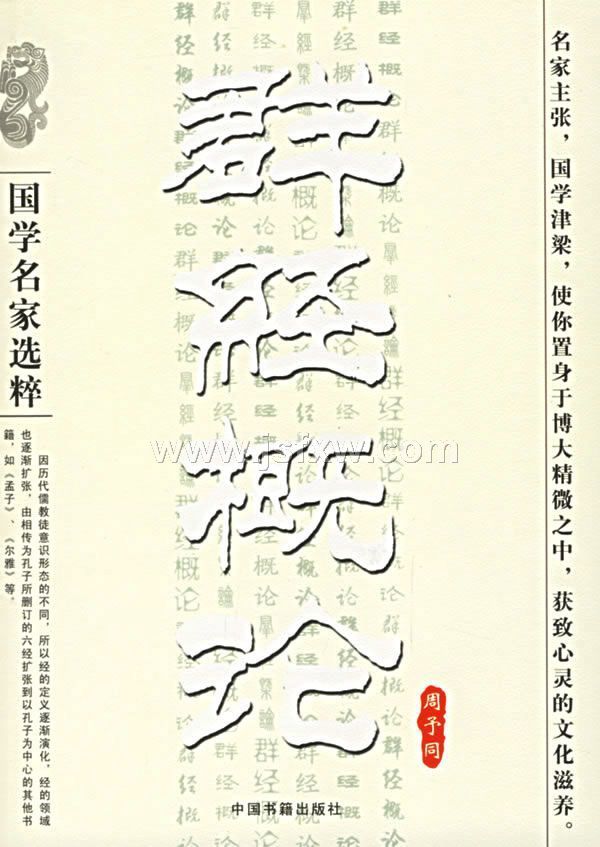 名家主张，国学津梁，使你置身于博大精微之中，获致心灵的文化滋养。
群经概论
周予同
中国书籍出版社
国学名家选粹
因历代儒教徒意识形态的不同，所以经的定义逐渐演化，经的领域
也逐渐扩张，由相传为孔子所删订的六经扩张到以孔子为中心的其他书
籍，如《孟子》、《尔雅》等。
www.jsfxw.com